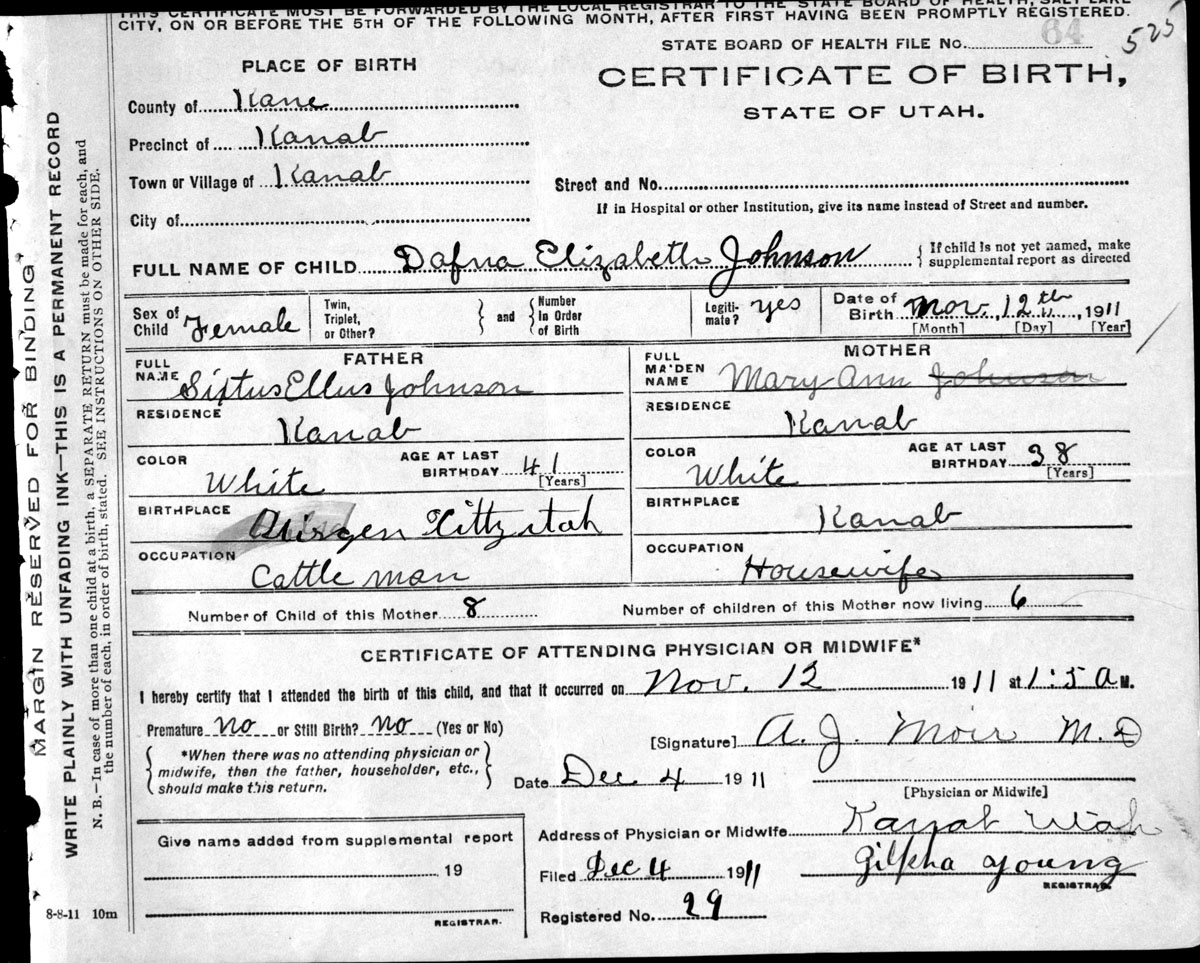 THIS CERTIFICATE MUST BE FORWARDED BY THE LOCAL REGISTRAR TO THE STATE BOARD OF HEALTH, SALT LAKE
CITY, ON OR BEFORE THE 5TH OF THE FOLLOWING MONTH, AFTER FIRST HAVING BEEN PROMPTLY REGISTERED.
STATE BOARD OF HEALTH FILE No. 64 525
PLACE OF BIRTH
CERTIFICATE OF BIRTH,
STATE OF UTAH.
County of Kane
Precinct of Kanab
Town or Village of Kanab
Street and No.
City of
If in Hospital or other Institution, give its name instead of Street and number.
FULL NAME OF CHILD Dafna Elizabeth Johnson { If child is not yet named, make supplemental report as directed
Sex of Child Female Twin, Triplet, or Other? } and { Number In Order of Birth Legitimate? yes Date of Birth Nov. 12th, 1911
[Month] [Day] [Year]
FATHER
MOTHER
FULL NAME Sixtus Ellus Johnson
FULL MAIDEN NAME Mary Ann Johnson
RESIDENCE Kanab
RESIDENCE Kanab
COLOR White AGE AT LAST BIRTHDAY 41 [Years]
COLOR White AGE AT LAST BIRTHDAY 38 [Years]
BIRTHPLACE
BIRTHPLACE Kanab
OCCUPATION Cattle man
OCCUPATION Housewife
Number of Child of this Mother 8 Number of children of this Mother now living 6
CERTIFICATE OF ATTENDING PHYSICIAN OR MIDWIFE*
I hereby certify that I attended the birth of this child, and that it occurred on Nov. 12 1911 at 1:5 A M.
Premature No or Still Birth? No (Yes or No)
*When there was no attending physician or midwife, then the father, householder, etc., should make this return.
[Signature] A. J. Moir M.D
Date Dec 4 1911
[Physician or Midwife]
Address of Physician or Midwife Kanab Utah
Filed Dec 4 1911 Young
REGISTRAR.
Registered No. 29
Give name added from supplemental report
19
REGISTRAR.
8-8-11 10m
MARGIN RESERVED FOR BINDING
WRITE PLAINLY WITH UNFADING INK—THIS IS A PERMANENT RECORD
N. B.—In case of more than one child at a birth, a SEPARATE RETURN must be made for each, and
the number of each, in order of birth, stated. SEE INSTRUCTIONS ON OTHER SIDE.